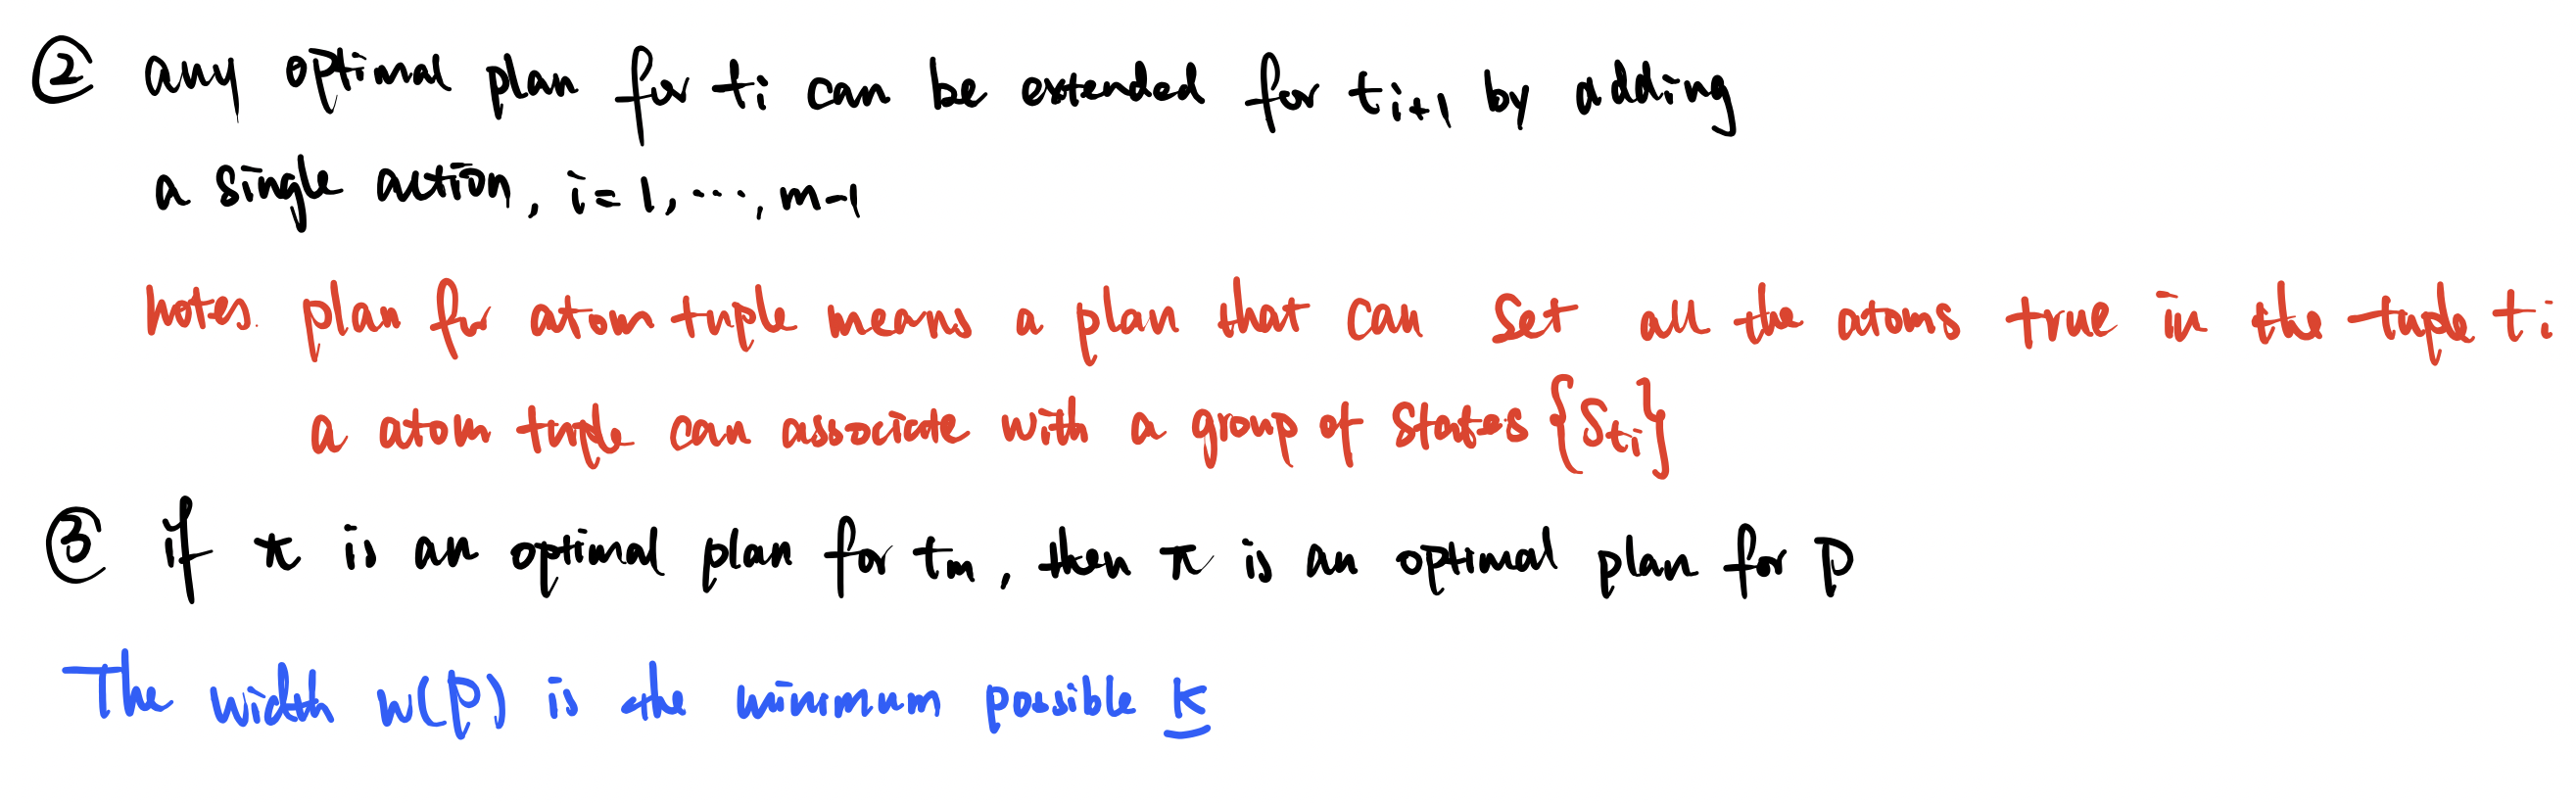 ② any optimal plan for tᵢ can be extended for tᵢ₊₁ by adding
a single action, i=1, ..., m-1
notes. plan for atom tuple means a plan that can set all the atoms true in the tuple tᵢ
a atom tuple can associate with a group of states {S_tᵢ}
③ if π is an optimal plan for tₘ, then π is an optimal plan for P
The width w(P) is the minimum possible K